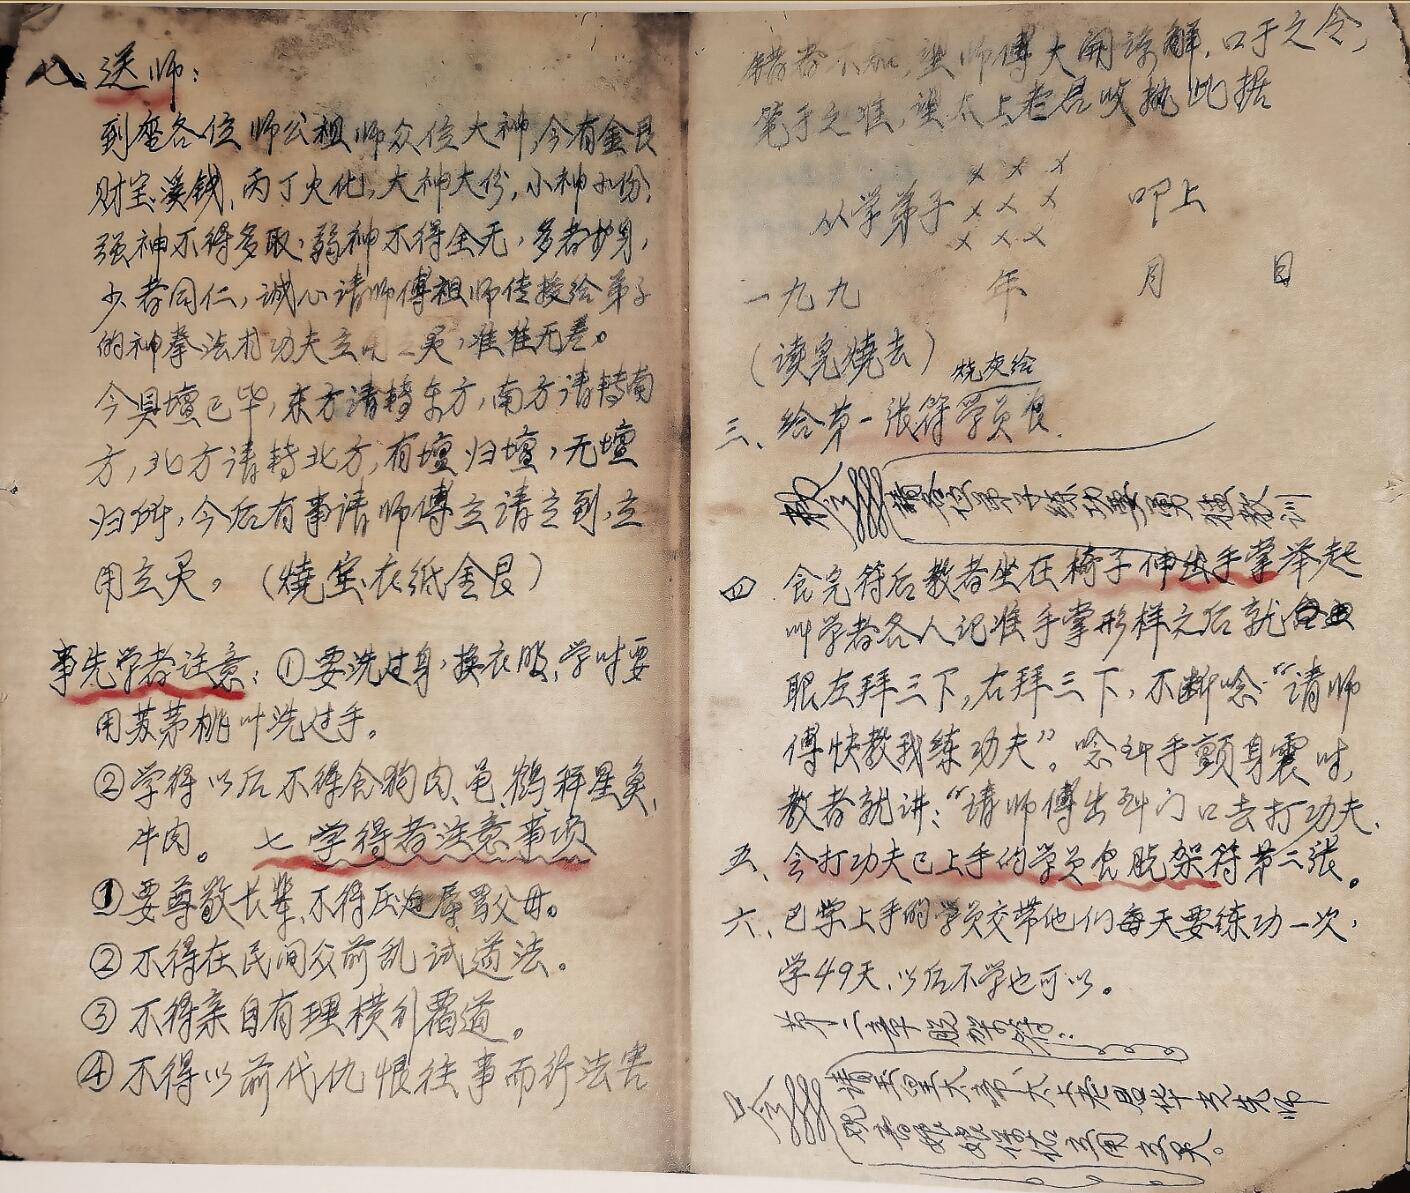 八 送师：
到座各位师公祖师众位大神，今有金艮
财宝溪钱，丙丁火化，大神大份，小神小份，
强神不得多取，弱神不得全无，多者护身，
少者同仁，诚心请师傅祖师传授给弟子
的神拳法打功夫立用立灵，准准无差。
今具壇已毕，东方请转东方，南方请转南
方，北方请转北方，有壇归壇，无壇
归所，今后有事请师傅立请立到，立
用立灵。（燒宝衣纸金艮）
事先学者注意：①要洗过身，换衣服，学时要
用苏茅桃叶洗过手。
②学得以后不得食狗肉、龟、鹤、秤星鱼、
牛肉。 七 学得者注意事项
①要尊敬长辈，不得压迫辱骂父母。
②不得在民间众前乱试道法。
③不得亲自有理横行霸道。
④不得以前代仇恨往事而行法害
错者不知，望师傅大开谅解，口于之令，
笔于之准，望太上老君收执此据
从学弟子××× ××× ××× 叩上
一九九 年 月 日
（读完燒去）
三、给第一张符学员食 烧灰给
请各位弟子练功要勇猛教训
四 食完符后教者坐在椅子伸出手掌举起
叫学者各人记准手掌形样之后就
眼左拜三下，右拜三下，不断唸“请师
傅快教我练功夫”。唸到手颤身震时，
教者就讲：“请师傅出到门口去打功夫.
五、会打功夫已上手的学员食脱架符第二张。
六、已学上手的学员交带他们每天要练功一次，
学49天，以后不学也可以。
第二章脱架符：